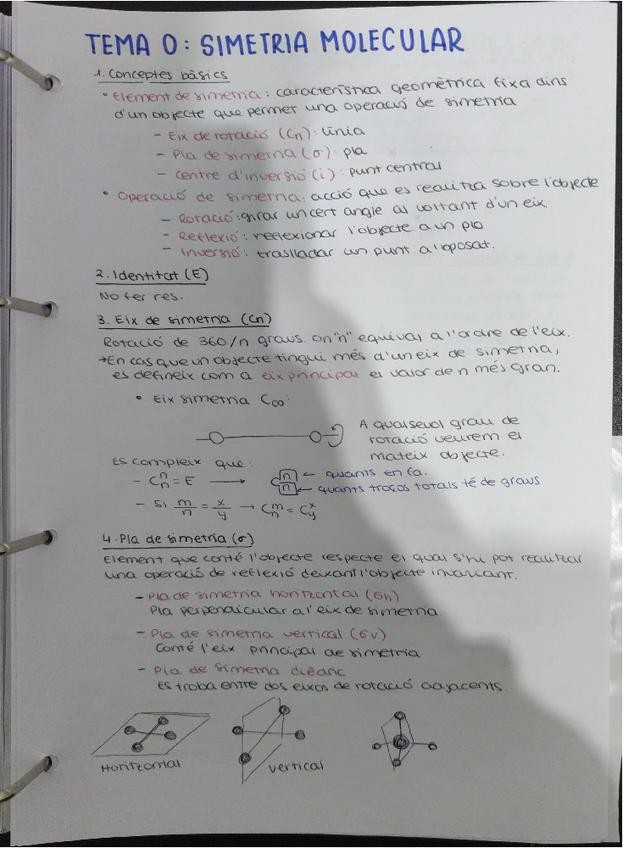 TEMA 0: SIMETRIA MOLECULAR
1. Conceptes bàsics
• Element de simetria: característica geomètrica fixa dins
d'un objecte que permet una operació de simetria
- Eix de rotació (Cn): línia
- Pla de simetria (σ): pla
- Centre d'inversió (i): punt central
• Operació de simetria: acció que es realitza sobre l'objecte
- Rotació: girar un cert angle al voltant d'un eix.
- Reflexió: reflexionar l'objecte a un pla
- Inversió: traslladar un punt a l'oposat.
2. Identitat (E)
No fer res.
3. Eix de simetria (Cn)
Rotació de 360/n graus. on "n" equival a l'ordre de l'eix.
→ En cas que un objecte tingui més d'un eix de simetria,
es defineix com a eix principal el valor de n més gran.
• Eix simetria C∞:
A qualsevol grau de
rotació veurem el
mateix objecte.
Es compleix que:
- Cⁿₙ = E → C n ← quants en fa.
n ← quants troços totals té de graus
- Si m/n = x/y → Cᵐₙ = Cˣy
4. Pla de simetria (σ)
Element que conté l'objecte respecte el qual s'hi pot realitzar
una operació de reflexió deixant l'objecte invariant.
- Pla de simetria horitzontal (σh)
Pla perpendicular a l'eix de simetria
- Pla de simetria vertical (σv)
Conté l'eix principal de simetria
- Pla de simetria dièdric
Es troba entre dos eixos de rotació adjacents.
Horitzontal
vertical